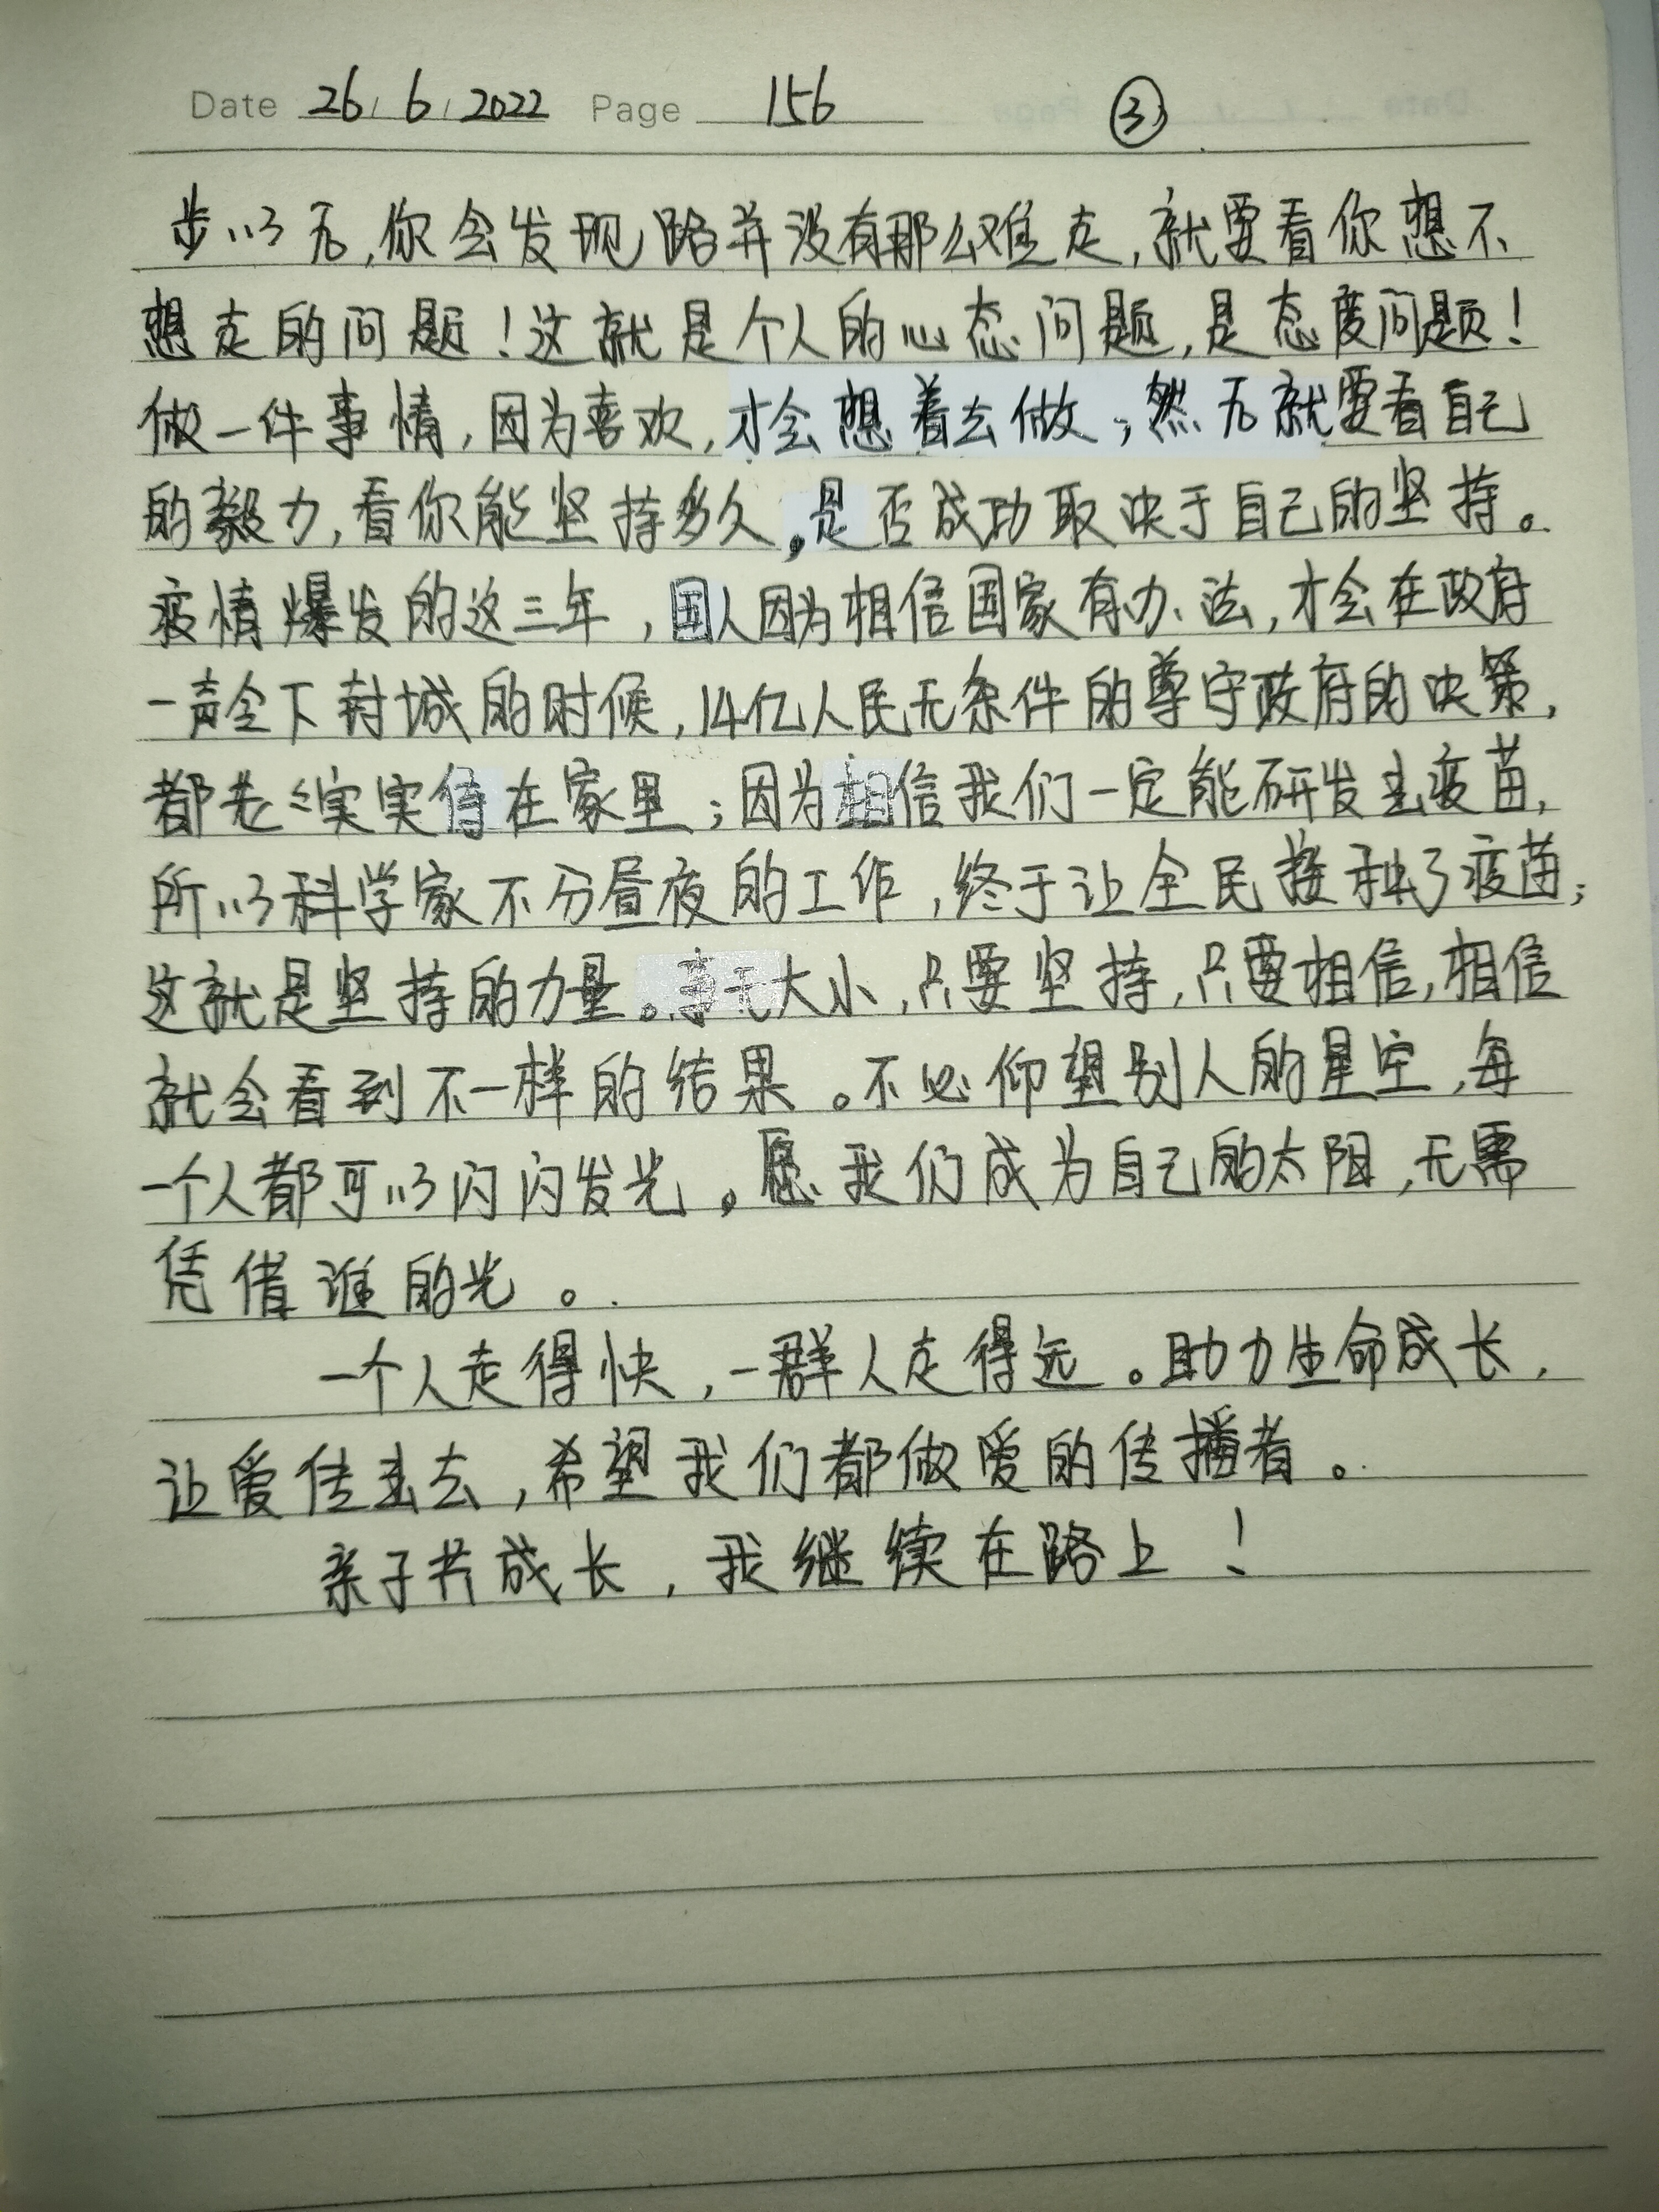 Date 26/6/2022 Page 156 ③
步以后,你会发现路并没有那么难走,就要看你想不
想走的问题!这就是个人的心态问题,是态度问题!
做一件事情,因为喜欢,才会想着去做;然后就要看自己
的毅力,看你能坚持多久。是否成功取决于自己的坚持。
疫情爆发的这三年,国人因为相信国家有办法,才会在政府
一声令下封城的时候,14亿人民无条件的尊守政府的决策,
都老老实实待在家里;因为相信我们一定能研发出疫苗,
所以科学家不分昼夜的工作,终于让全民接种了疫苗;
这就是坚持的力量。事无大小,只要坚持,只要相信,相信
就会看到不一样的结果。不必仰望别人的星空,每
一个人都可以闪闪发光。愿我们成为自己的太阳,无需
凭借谁的光。
一个人走得快,一群人走得远。助力生命成长,
让爱传出去,希望我们都做爱的传播者。
亲子共成长,我继续在路上!